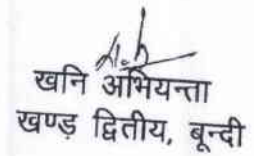 खनि अभियन्ता
खण्ड द्वितीय, बून्दी